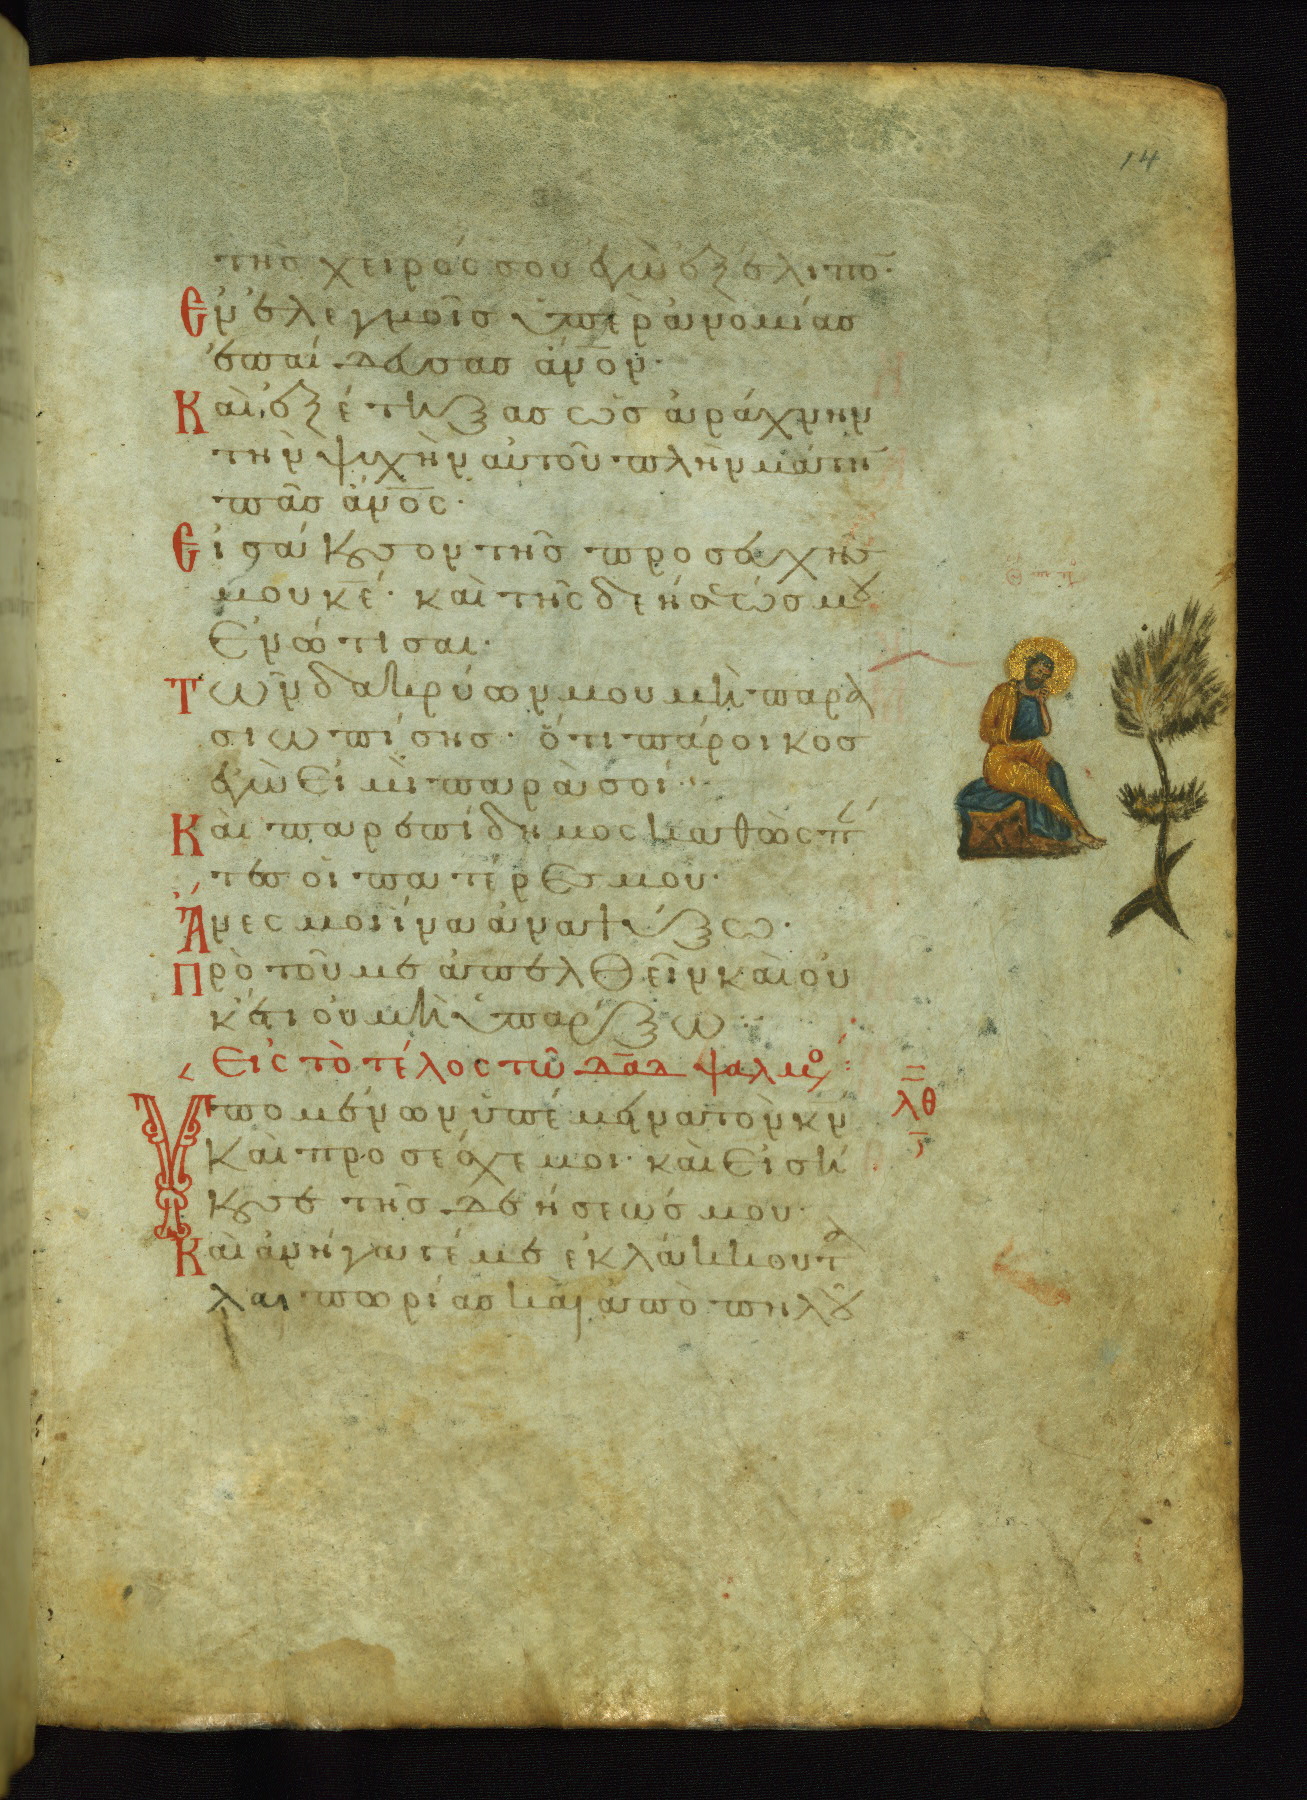 14
τῆς χειρός σου ἐγὼ ἐξέλιπο̄·
Ἐν ἐλεγμοῖς ὑπὲρ ἀνομίας
ἐπαίδευσας ἄν̅ον·
Καὶ ἐξέτηξας ὡς ἀράχνην
τὴν ψυχὴν αὐτοῦ πλὴν μάτη̄
πᾶς ἄν̅ος·
Εἰσάκουσον τῆς προσευχῆς
μου κ̅ε· καὶ τῆς δεήσεώς μου
Ἐνώτισαι·
Τῶν δακρύων μου μὴ παρα
σιωπίσης· ὅτι πάροικος
ἐγὼ εἰμὶ παρὰ σοί·
Καὶ παρεπίδημος καθὼς π
τες οἱ πατέρες μου·
Ἄνες μοι ἵνα ἀναψύξω·
Πρὸ τοῦ με ἀπελθεῖν καὶ οὐ
κέτι οὐ μὴ ὑπάρξω
Εἰς τὸ τέλος τῶ δα̅δ ψαλμο
λθ
Ὑπομένων ὑπέμεινα τὸν κ̅ν
Καὶ προσέσχε μοι· καὶ εἰσή
κουσε τῆς δεήσεώς μου·
Καὶ ἀνήγαγέ με ἐκ λάκκου τα
λαιπωρίας καὶ ἀπὸ πηλοῦ